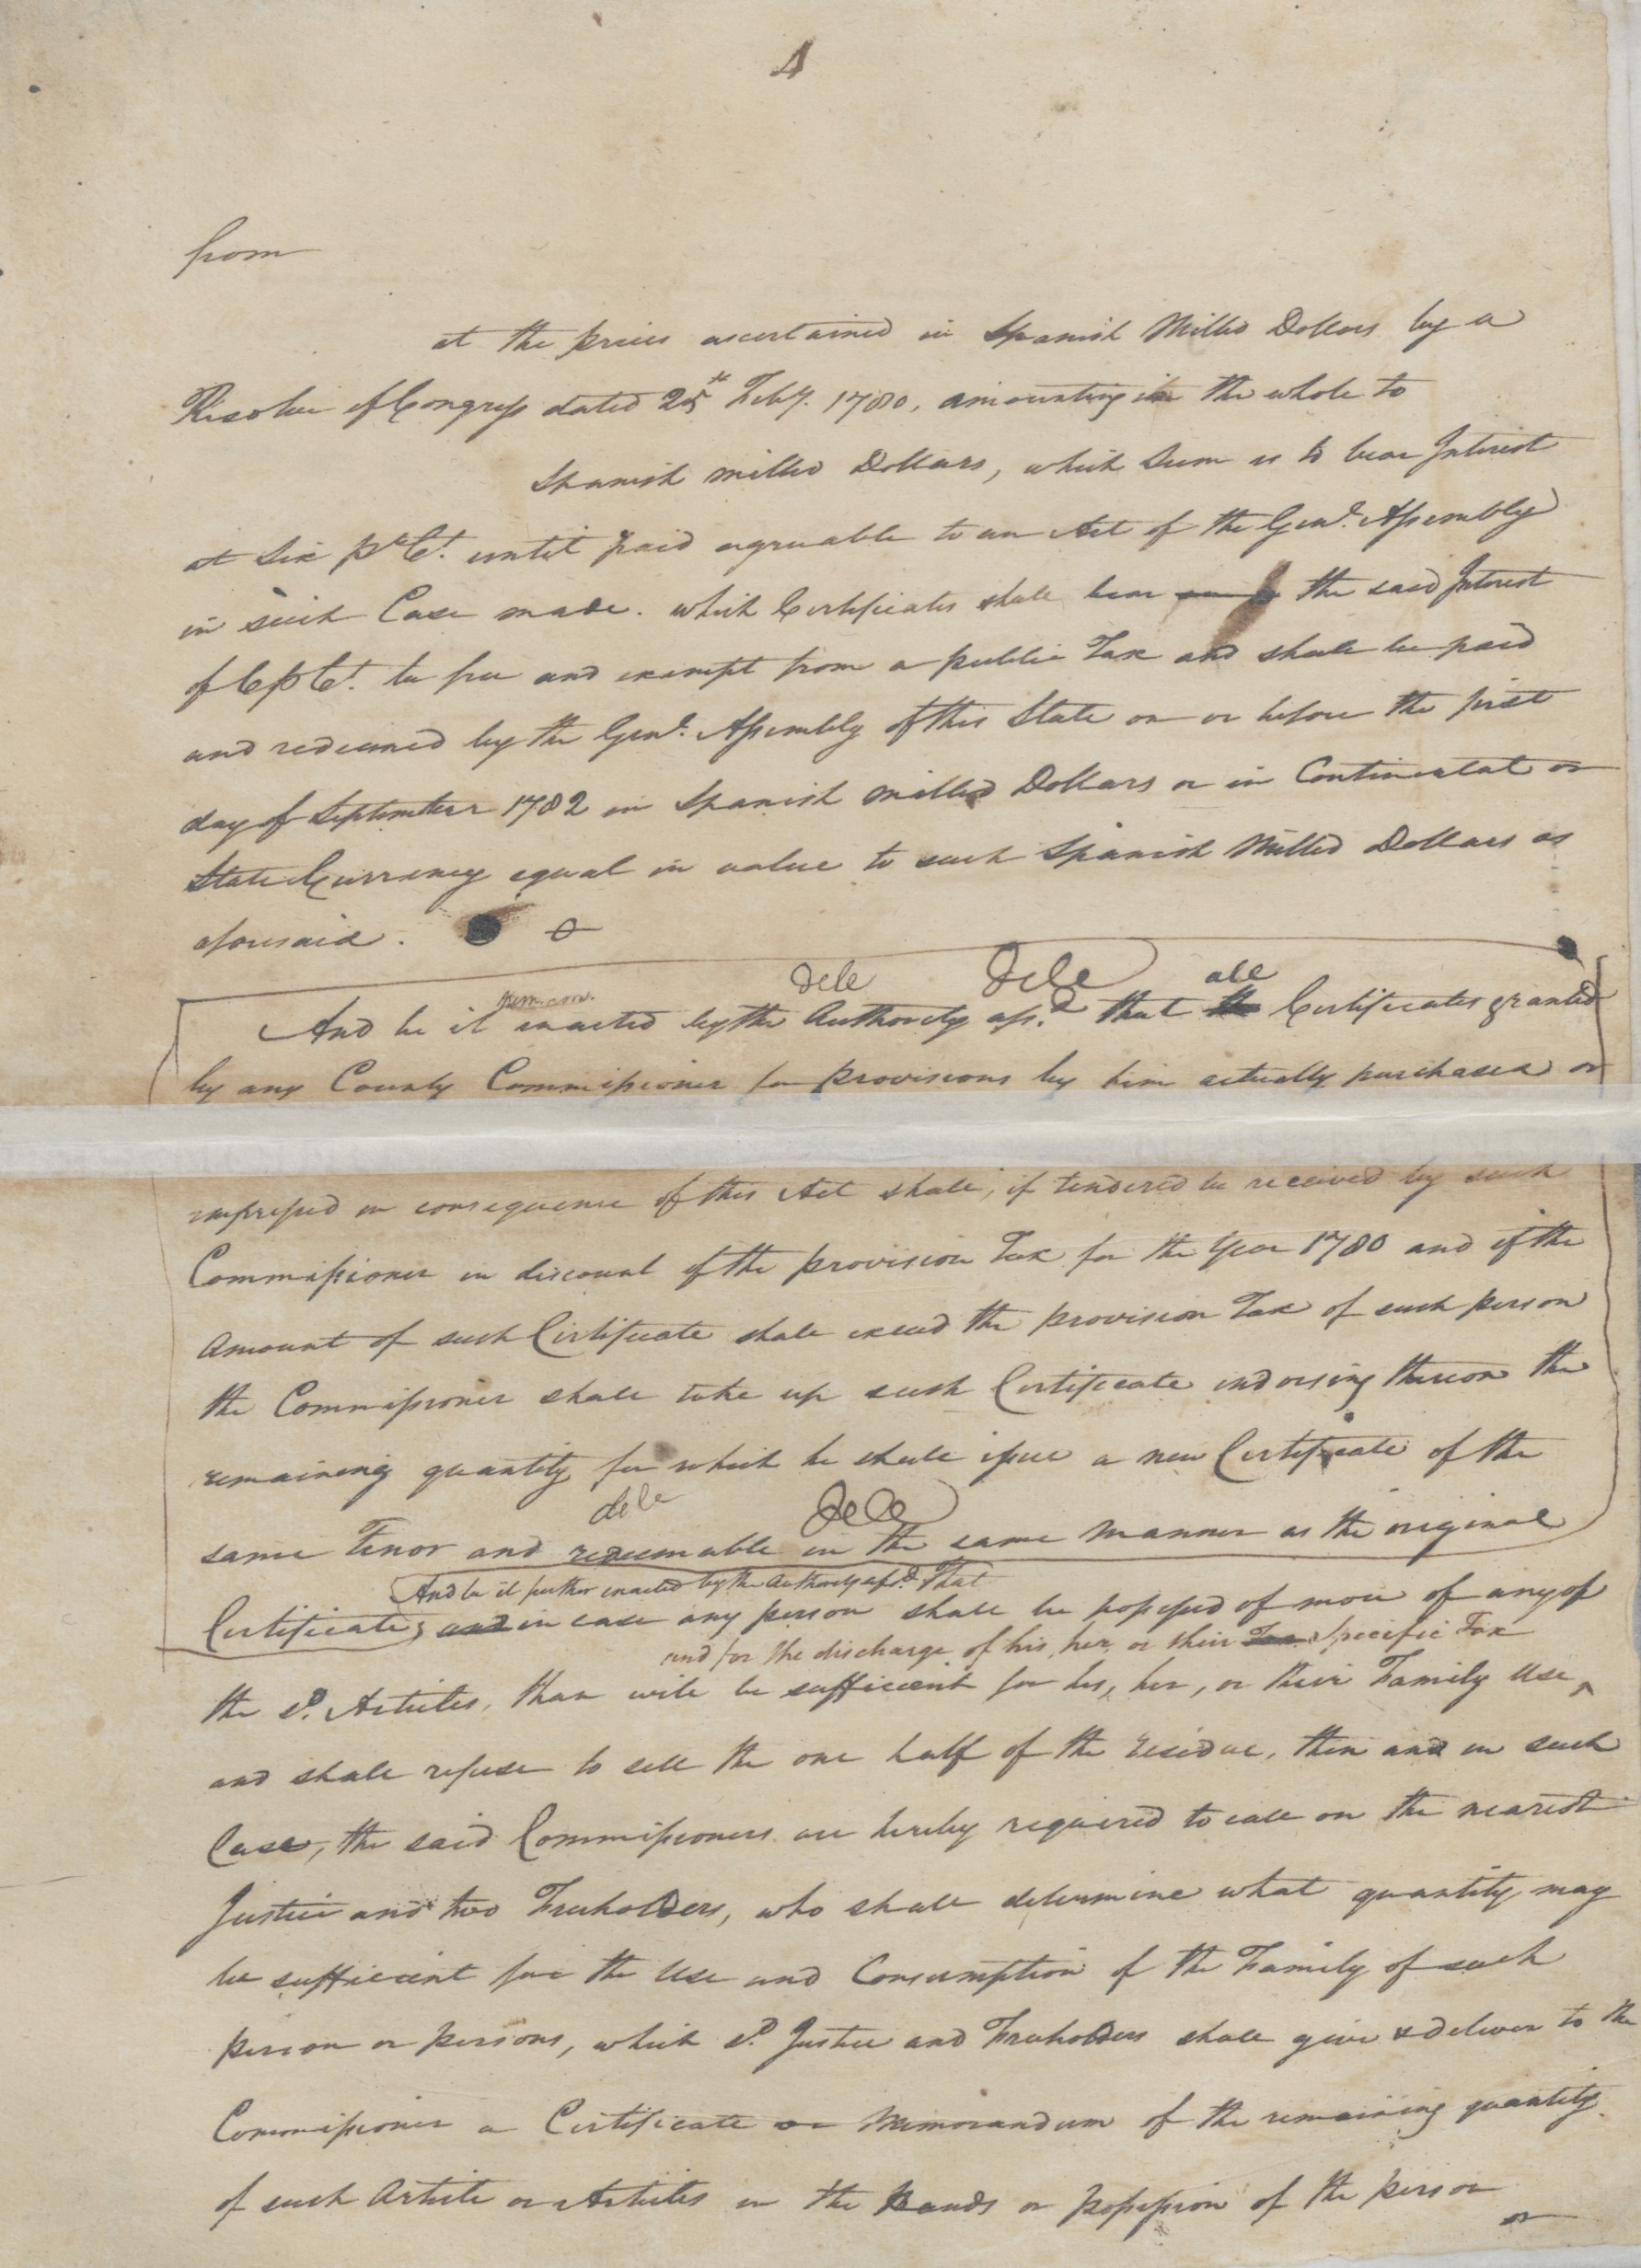 4
from
at the prices ascertained in Spanish Milled Dollars by a
Resolve of Congress dated 25th Feby. 1780, amounting in the whole to
Spanish milled Dollars, which Sum is to bear Interest
at Six pr Ct. until paid agreeable to an Act of the Genl. Assembly
in such Case made. which Certificates shall bear the said Interest
of 6 p Ct. be free and exempt from a public Tax and shall be paid
and redeemed by the Genl. Assembly of this State on or before the first
day of September 1782 in Spanish milled Dollars or in Continental or
State Currency equal in value to such Spanish Milled Dollars as
aforesaid.
dele dele all
And be it enacted by the Authority afsd. that the Certificates granted
by any County Commissioner for provisions by him actually purchased or
impressed in consequence of this Act shall, if tendered be received by such
Commissioner in discount of the provision Tax for the Year 1780 and if the
Amount of such Certificate shall exceed the provision Tax of such person
the Commissioner shall take up such Certificate indorsing thereon the
remaining quantity for which he shall issue a new Certificate of the
dele dele
same Tenor and redeemable in the same Manner as the original
And be it further enacted by the Authority afsd. That
Certificate; and in case any person shall be possessed of more of any of
and for the discharge of his, her, or their Tax Specific Tax
the sd. Articles, than will be sufficient for his, her, or their Family Use ‸
and shall refuse to sell the one half of the residue, then and in such
Case, the said Commissioners are hereby required to call on the nearest
Justice and two Freeholders, who shall determine what quantity may
be sufficient for the Use and Consumption of the Family of such
person or persons, which sd. Justice and Freeholders shall give & deliver to the
Commissioner a Certificate or Memorandum of the remaining quantity
of such Article or Articles in the Hands or possession of the person
or